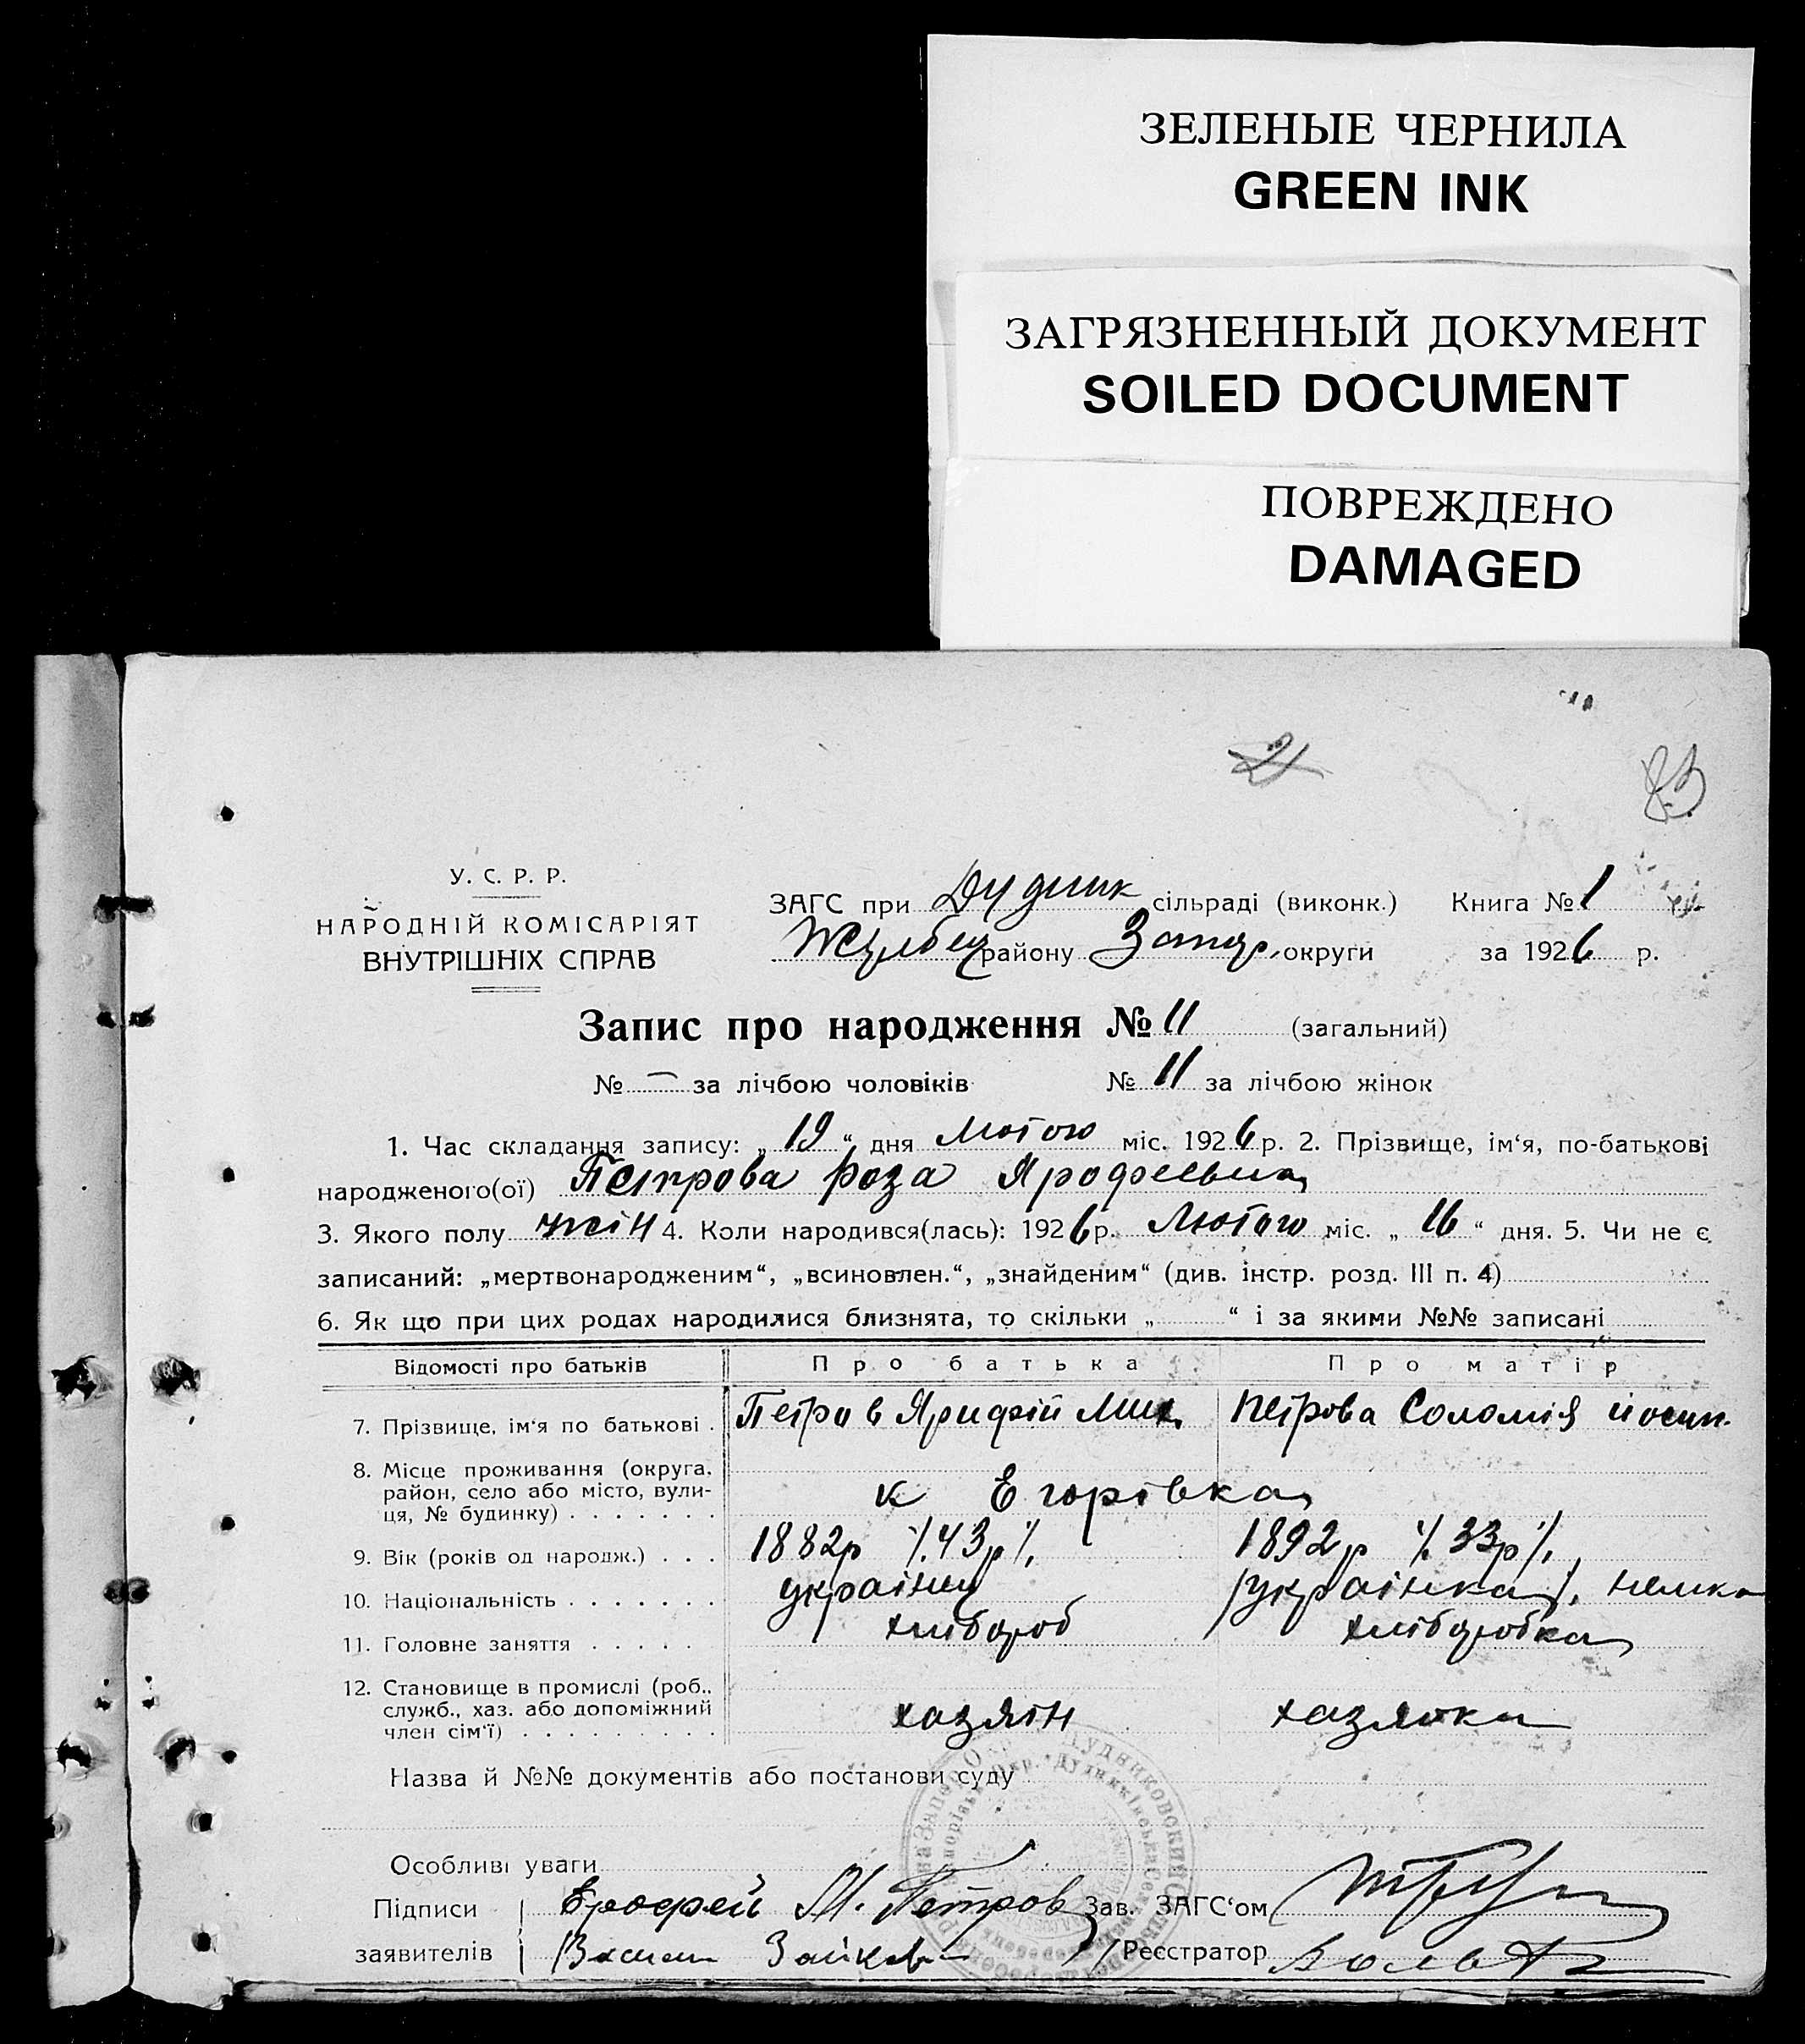 ЗЕЛЕНЫЕ ЧЕРНИЛА
GREEN INK
ЗАГРЯЗНЕННЫЙ ДОКУМЕНТ
SOILED DOCUMENT
ПОВРЕЖДЕНО
DAMAGED
21
83
У. С. Р. Р.
НАРОДНІЙ КОМІСАРІЯТ
ВНУТРІШНІХ СПРАВ
ЗАГС при Дудник сільраді (виконк.) Книга № 1
Жеребец району Запор. округи за 1926 р.
Запис про народження № 11 (загальний)
№ — за лічбою чоловіків № 11 за лічбою жінок
1. Час складання запису: „19“ дня Лютого міс. 1926 р. 2. Прізвище, ім‘я, по-батькові
народженого(ої) Петрова Роза Ярофеевна
3. Якого полу жін 4. Коли народився(лась): 1926 р. Лютого міс. „16“ дня. 5. Чи не є
записаний: „мертвонародженим“, „всиновлен.“, „знайденим“ (див. інстр. розд. III п. 4)
6. Як що при цих родах народилися близнята, то скільки „ “ і за якими №№ записані
Відомості про батьків Про батька Про матір
7. Прізвище, ім‘я по батькові . Петров Ярифій Мих. Петрова Соломія Йосип.
8. Місце проживання (округа, район, село або місто, вулиця, № будинку) . . . . . . . к Егорівка
9. Вік (років од народж.) . . . 1882р /.43р/. 1892р /.33р/.
10. Національність . . . . . . . українец /українка/. немка
11. Головне заняття . . . . . хлібороб хліборобка
12. Становище в промислі (роб., служб., хаз. або допоміжний член сім‘ї) . . . . . . . . . хазяін хазяйка
Назва й №№ документів або постанови суду
Особливі уваги
Підписи Ерофей М. Петров Зав. ЗАГС‘ом
заявителів Реєстратор